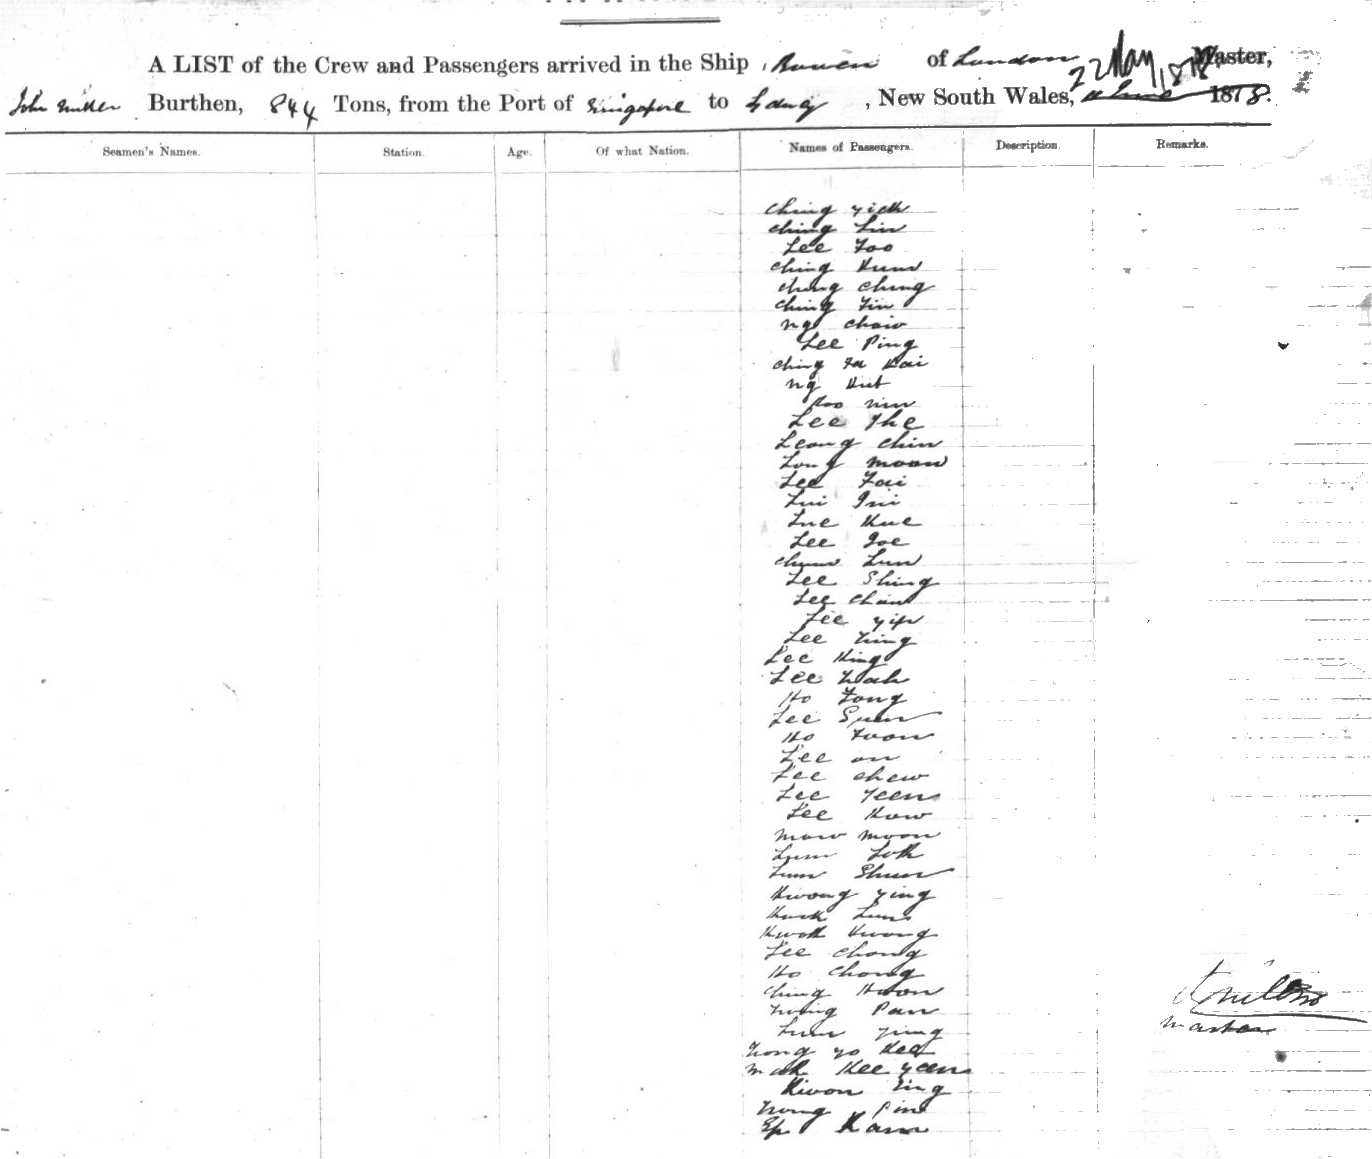 A LIST of the Crew and Passengers arrived in the Ship, Bowen of London 22 May 1878 Master,
John Miller Burthen, 844 Tons, from the Port of Singapore to Sydney, New South Wales, 1878.
Seamen's Names. Station. Age. Of what Nation. Names of Passengers. Description. Remarks.
Ching Yick
Ching Lin
Lee Foo
Ching Kum
Chung Ching
Ching Tin
Ng Chaw
Lee Ping
Ching Fa Kai
Ng Kut
Lee The
Leong Chin
Long Moon
Lee Fai
Lui
Lue Kue
Lee Joe
Chum Lun
Lee Shing
Lee Chan
Lee Yip
Lee
Lee King
Lee Wah
Ho Fong
Lee Sum
Ho Foon
Lee on
Lee Chew
Lee Yeen
Lee How
Maw Moon
Lum Loth
Lum Shun
Kwong Ying
Kwok Lum
Kwok Kwong
Lee Chong
Ho Chong
Ching Hoon
Pan
Lum Ying
Wong Yo Kee
Mak Kee Yeen
Kwon Ting
Wong
Kam
Master